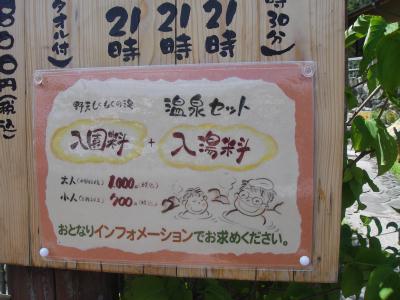 時30分)
21時 21時 21時
タオル付)
800円(税込)
温泉セット
入園料 + 入湯料
大人 1,000円(税込)
小人 700円(税込)
おとなりインフォメーションでお求めください。